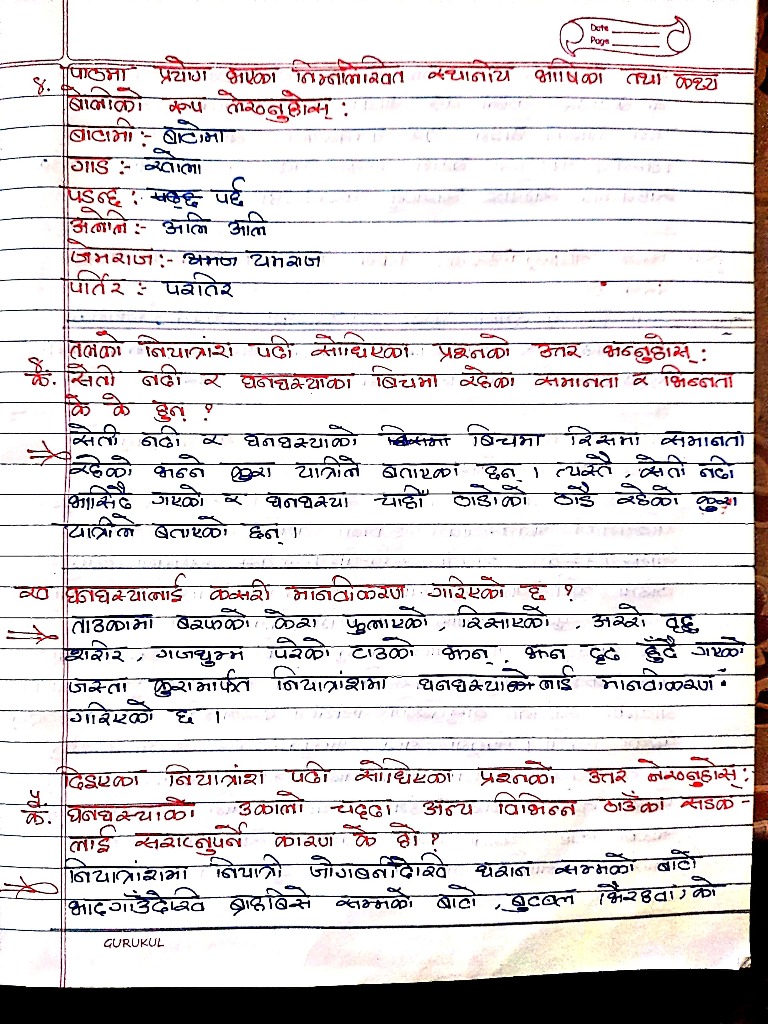 Date
Page
४. पाठमा प्रयोग भएका निम्नलिखित स्थानीय भाषिका तथा कथ्य
बोलीको रूप लेख्नुहोस् :
बाटामी :- बाटोमा
गाड :- खोला
पडन्छ : पर्छ
अलेलि :- अलि अलि
जेमराज :- यमराज
पर्तिर :- परतिर
तलको नियात्रांश पढी सोधिएका प्रश्नको उत्तर भन्नुहोस् :
४ क. सेती नदी र घनघस्याका बिचमा रहेका समानता र भिन्नता
के के हुन् ?
सेती नदी र घनघस्याको बिचमा रिसमा समानता
रहेको भन्ने कुरा यात्रीले बताएका छन् । त्यस्तै, सेती नदी
भासिँदै गएको र घनघस्या चाहीँ ठाडोको ठाडै रहेको कुरा
यात्रीले बताएको छन् ।
ख घनघस्यालाई कसरी मानवीकरण गरिएको छ ?
ताउकामा बरफको फेरा गुताएको, रिसाएको, अग्लो वृद्ध
शरीर, गजधुम्म परेको टाउको झन् झन् दृढ हुँदै गएको
जस्ता कुरामार्फत नियात्रांशमा घनघस्यालाई मानवीकरण
गरिएको छ ।
दिइएका नियात्रांश पढी सोधिएका प्रश्नको उत्तर लेख्नुहोस् :
५ क. घनघस्याको उकालो चढ्दा अन्य विभिन्न ठाउँका सडक -
लाई सराप्नुपर्ने कारण के हो ?
नियात्रांशमा नियात्री जोगबनीदेखि धरान सम्मको बाटो
भादगाउँदेखि ब्राहबिसे सम्मको बाटो, बुटवल भैरहवा को
GURUKUL